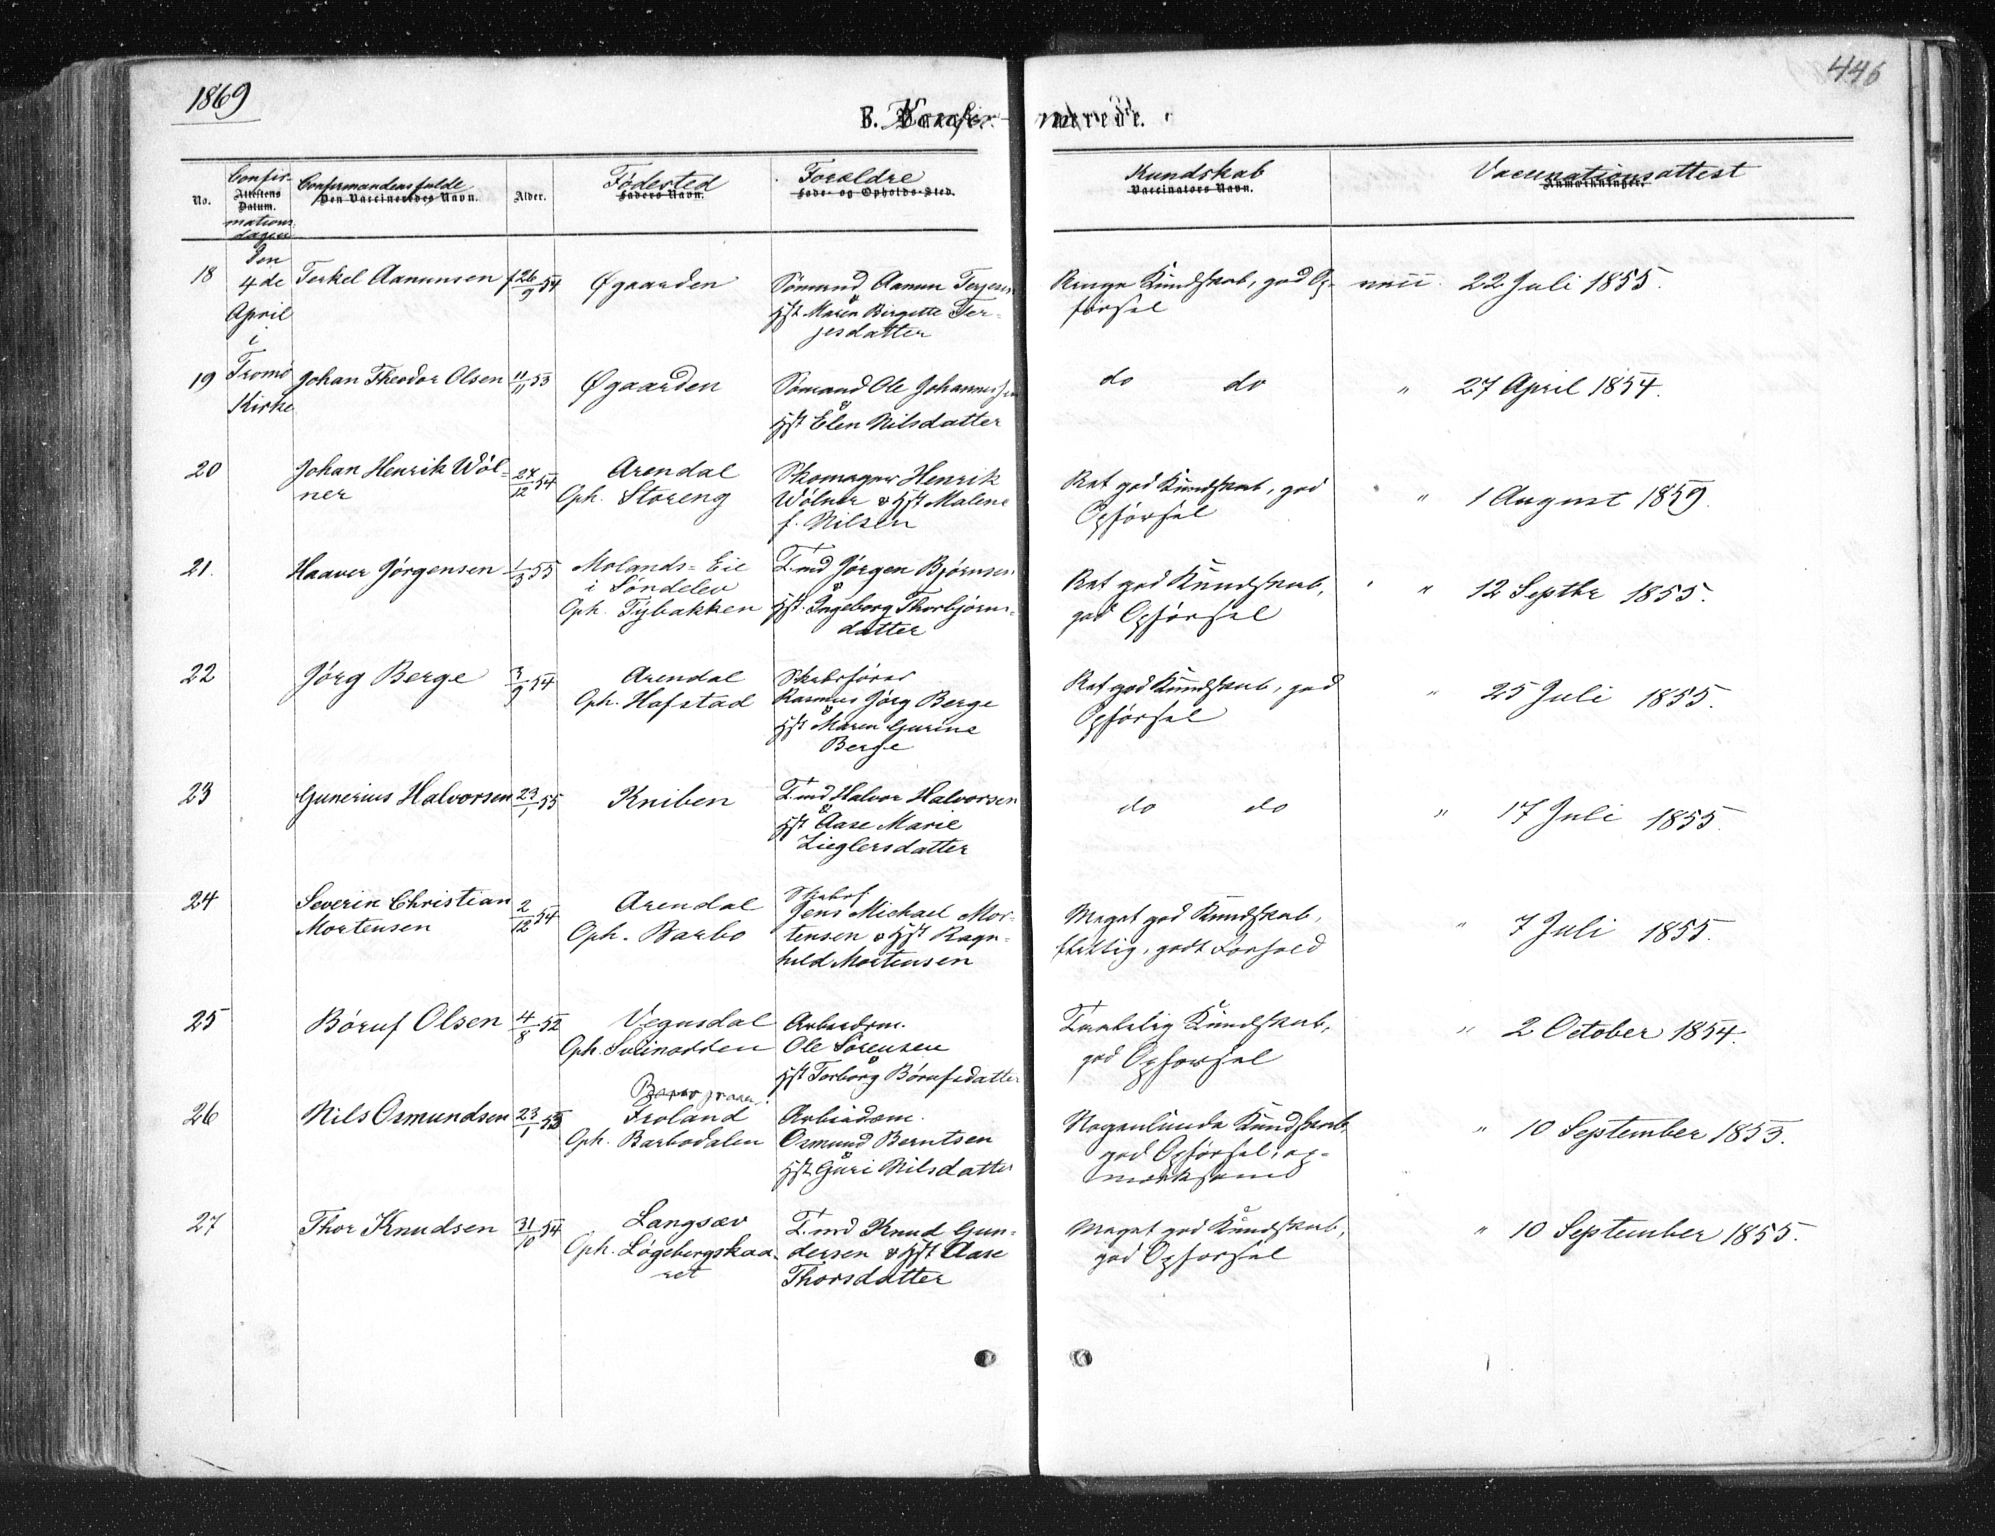 1869
446
B. Konfirmerede.
No.
Confir-
Attestens
Datum.
mations
dagen
Confirmandens fulde
Den Vaccineredes Navn.
Alder.
Fødested
Faders Navn.
Forældre
Føde- og Opholds-Sted.
Kundskab
Vaccinators Navn.
Vaccinationsattest
Anmærkninger.
Den
4de
April
i
Tromø
Kirke
18 Terkel Aanunsen f 26/9 54 Øgaarden
Sømand Aanun Terjesen
&
Hst Maren Birgitte Ter-
jesdatter
Kundskab, god Op-
førsel
22 Juli 1855.
19 Johan Theodor Olsen 11/11 53 Øgaarden
Sømand Ole Johannessen
&
Hst Elen Nilsdatter
do do
" 27 April 1854.
20 Johan Henrik Wöl-
ner
24/12 54
Arendal
Oph. Støreng
Skomager Henrik
Wölner & Hst Malene
f. Nilsen
Ret god Kundskab, god
Opførsel
" 1 August 1859.
21. Haaver Jørgensen 1/3 55
Molands-Eie
i Søndelev
Oph. Tybakken
T.md Jørgen Bjørnsen
&
Hst. Ingeborg Thorbjørns-
datter
Ret god Kundskab,
god Opførsel
" 12 Septbr 1855.
22 Jørg Berge 3/9 54
Arendal
Oph. Hafstad
Skibsfører
Rasmus Jørg Berge
&
Hst Maren Gurine
Berge
Ret god Kundskab, god
Opførsel
" 25 Juli 1855.
23 Gunerius Halvorsen 23/1 55 Kniben
T.md Halvor Halvorsen
&
Hst Aase Marie
Zieglersdatter
do do
" 17 Juli 1855.
24 Severin Christian
Mortensen
2/12 54
Arendal
Oph. Barbo
Skibsf.
Jens Michael Mor-
tensen & Hst Ragn-
hild Mortensen
Meget god Kundskab,
flittig, godt Forhold
" 7 Juli 1855.
25 Børuf Olsen 4/8 52
Vegusdal
Oph. Svinodden
Arbeidsm.
Ole Sørensen
&
Hst Torborg Børufsdatter
Taalelig Kundskab,
god Opførsel
" 2 October 1854.
26 Nils Osmundsen 23/1 53
Froland
Oph. Barbodalen
Arbeidsm.
Osmund Berntsen
&
Hst Guri Nilsdatter
Nogenlunde Kundskab,
god Opførsel, op-
mærksom
" 10 September 1853.
27 Thor Knudsen 31/10 54
Langsæv
Oph. Løgebergskaa-
ret
T.md Knud Gun-
dersen & Hst Aase
Thorsdatter
Meget god Kundskab,
god Opførsel
" 10 September 1855.